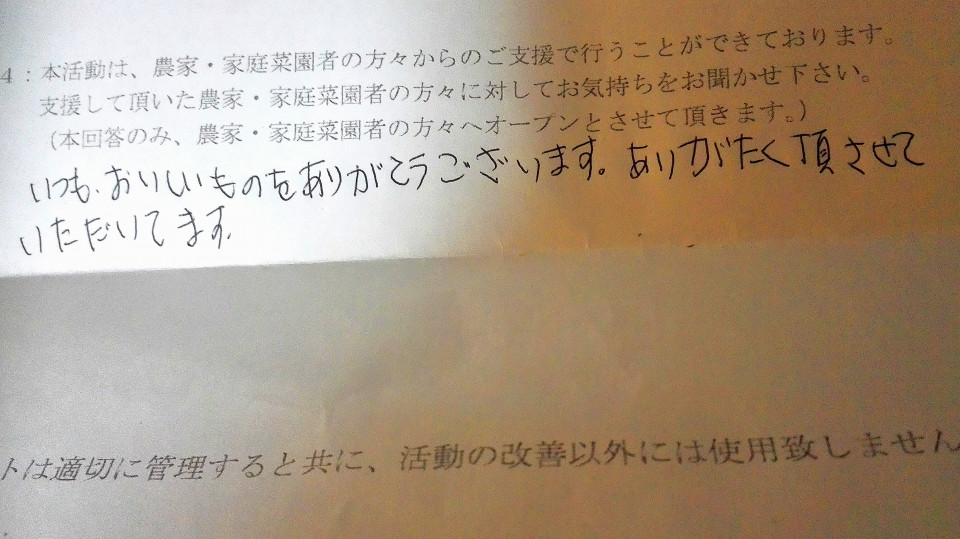 4：本活動は、農家・家庭菜園者の方々からのご支援で行うことができております。
支援して頂いた農家・家庭菜園者の方々に対してお気持ちをお聞かせ下さい。
(本回答のみ、農家・家庭菜園者の方々へオープンとさせて頂きます。)
いつも、おいしいものをありがとうございます。ありがたく頂させて
いただいてます。
トは適切に管理すると共に、活動の改善以外には使用致しません